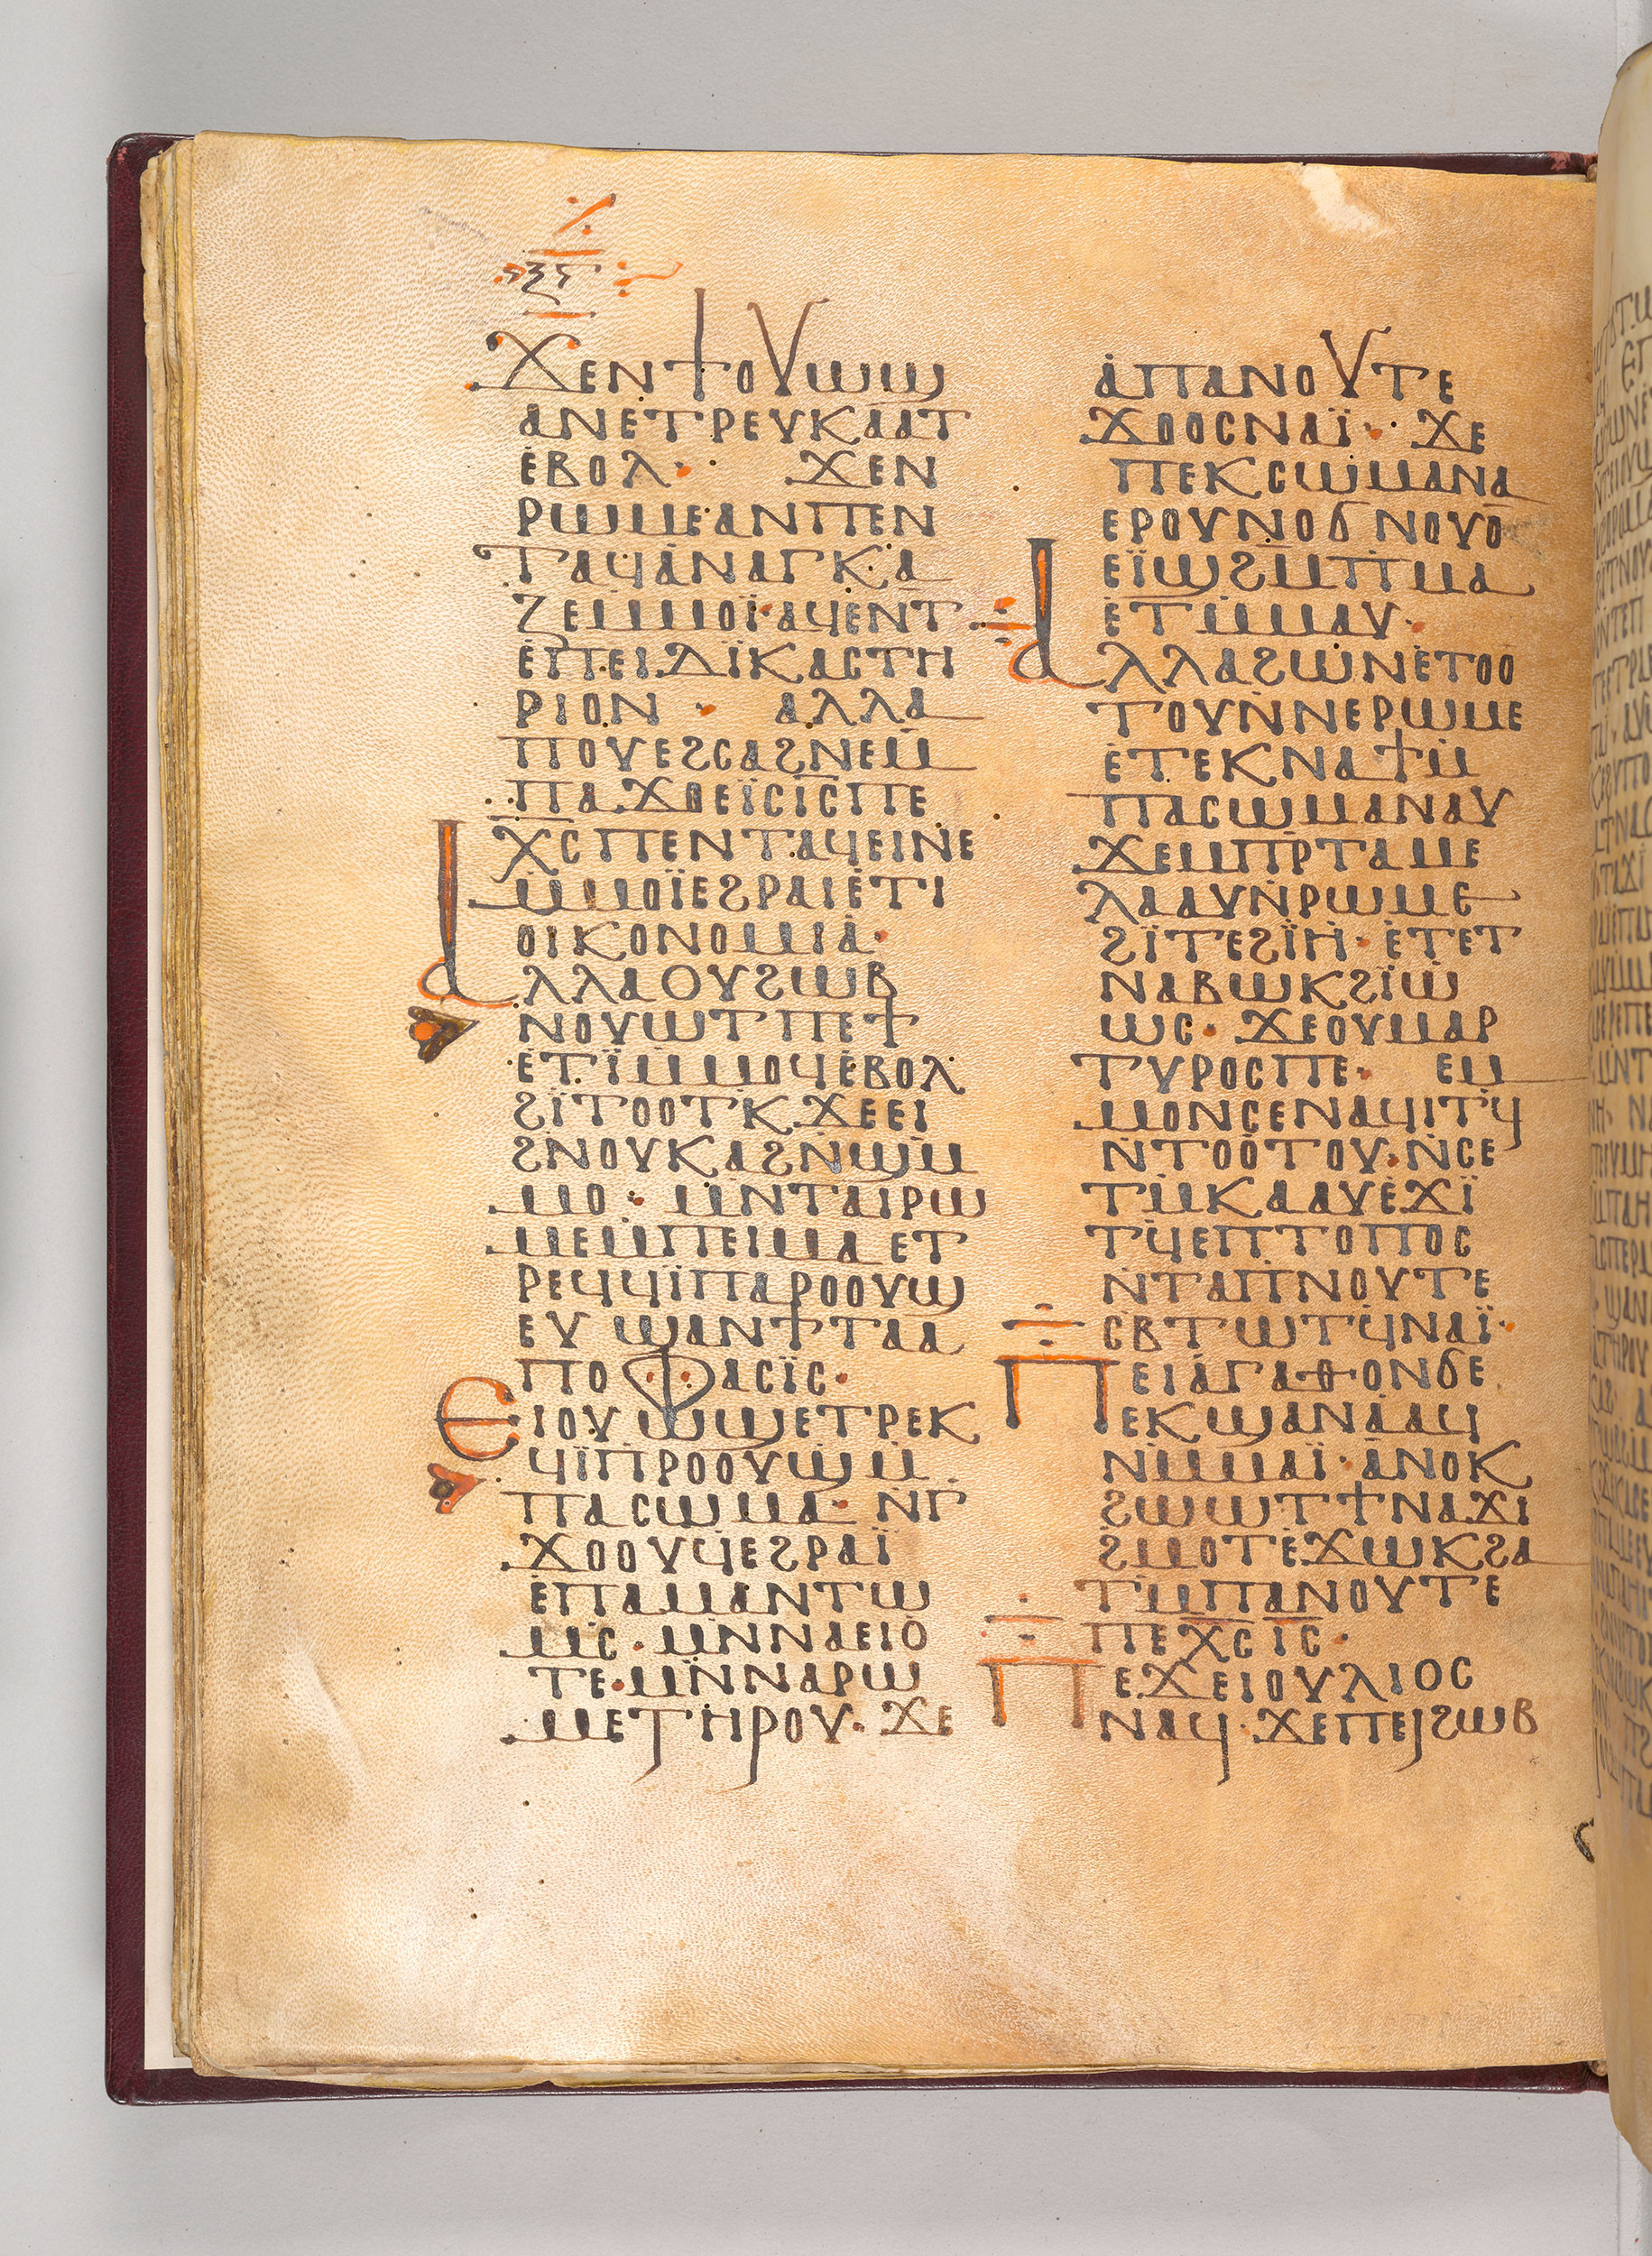 ϫⲉⲛϯⲟⲩⲱϣ
ⲁⲛⲉⲧⲣⲉⲩⲕⲁⲁⲧ
ⲉⲃⲟⲗ· ϫⲉⲛ
ⲣⲱⲙⲉⲁⲛⲡⲉⲛ
ⲧⲁϥⲁⲛⲁⲅⲕⲁ
ⲍⲉⲙⲙⲟⲓ̈·ⲁϥⲉⲛⲧ
ⲉⲡⲉⲓⲇⲓ̈ⲕⲁⲥⲧⲏ
ⲣⲓⲟⲛ · ⲁⲗⲗⲁ
ⲡⲟⲩⲉϩⲥⲁϩⲛⲉⲙ̄
ⲡⲁϫⲟⲉⲓ̈ⲥⲓ̅ⲥ̅ⲡⲉ
ⲭ̅ⲥ̅ⲡⲉⲛⲧⲁϥⲉⲓⲛⲉ
ⲙ̇ⲙⲟⲓ̈ⲉϩⲣⲁⲓⲉⲧⲓ
ⲟⲓⲕⲟⲛⲟⲙⲓⲁ·
ⲁⲗⲗⲁⲟⲩϩⲱⲃ
ⲛⲟⲩⲱⲧⲡⲉϯ
ⲉⲧⲓ̈ⲙⲙⲟϥⲉⲃⲟⲗ
ϩⲓ̈ⲧⲟⲟⲧⲕϫⲉⲉⲓ
ϩⲛⲟⲩⲕⲁϩⲛ̇ϣⲙ̇
ⲙⲟ · ⲙ̇ⲛⲧⲁⲓⲣⲱ
ⲙⲉⲙ̇ⲡⲉⲓⲙⲁ ⲉⲧ
ⲣⲉϥϥⲓ̈ⲡⲁⲣⲟⲟⲩϣ
ⲉⲩϣⲁⲛϯⲧⲁⲁ
ⲡⲟⲫⲁⲥⲓ̈ⲥ·
ⲉⲓⲟⲩⲱϣⲉⲧⲣⲉⲕ
ϥⲓ̈ⲡⲣⲟⲟⲩϣⲙ̇
ⲡⲁⲥⲱⲙⲁ· ⲛⲅ̄
ϫⲟⲟⲩϥⲉϩⲣⲁⲓ̈
ⲉⲡⲁⲙⲁⲛⲧⲱ
ⲙⲥ·ⲙ̇ⲛⲛⲁⲉⲓⲟ
ⲧⲉ·ⲙ̇ⲛⲛⲁⲣⲱ
ⲙⲉⲧⲏⲣⲟⲩ· ϫⲉ
ⲁⲡⲁⲛⲟⲩⲧⲉ
ϫⲟⲟⲥⲛⲁⲓ̈· ϫⲉ
ⲡⲉⲕⲥⲱⲙⲁⲛⲁ
ⲉⲣⲟⲩⲛⲟϭⲛⲟⲩⲟ
ⲉⲓ̈ϣϩⲙ̄ⲡⲙⲁ
ⲉⲧⲙ̇ⲙⲁⲩ·
ⲁⲗⲗⲁϩⲱⲛⲉⲧⲟⲟ
ⲧⲟⲩⲛ̇ⲛⲉⲣⲱⲙⲉ
ⲉⲧⲉⲕⲛⲁϯⲙ̇
ⲡⲁⲥⲱⲙⲁⲛⲁⲩ
ϫⲉⲙⲡⲣ̄ⲧⲁⲙⲉ
ⲗⲁⲁⲩⲛ̇ⲣⲱⲙⲉ
ϩⲓ̈ⲧⲉϩⲓ̈ⲏ· ⲉⲧⲉⲧ
ⲛⲁⲃⲱⲕϩⲓ̈ⲱ
ⲱⲥ· ϫⲉⲟⲩⲙⲁⲣ
ⲧⲩⲣⲟⲥⲡⲉ· ⲉⲙ
ⲙⲟⲛⲥⲉⲛⲁϥⲓⲧϥ
ⲛ̇ⲧⲟⲟⲧⲟⲩ·ⲛ̇ⲥⲉ
ⲧⲙ̇ⲕⲁⲁⲩⲉϫⲓ̈
ⲧϥⲉⲡⲧⲟⲡⲟⲥ
ⲛ̇ⲧⲁⲡⲛⲟⲩⲧⲉ
ⲥⲃⲧⲱⲧϥⲛⲁⲓ̈·
ⲡⲉⲓⲁⲅⲁⲑⲟⲛϭⲉ
ⲉⲕϣⲁⲛⲁⲁϥ
ⲛⲙ̇ⲙⲁⲓ̈·ⲁⲛⲟⲕ
ϩⲱⲱⲧϯⲛⲁϫⲓ
ϩⲙⲟⲧⲉϫⲱⲕϩⲁ
ⲧⲙ̇ⲡⲁⲛⲟⲩⲧⲉ
ⲡⲉⲭ̅ⲥ̅ⲓ̅ⲥ̅·
ⲡⲉϫⲉⲓⲟⲩⲗⲓⲟⲥ
ⲛⲁϥ·ϫⲉⲡⲉⲓϩⲱⲃ